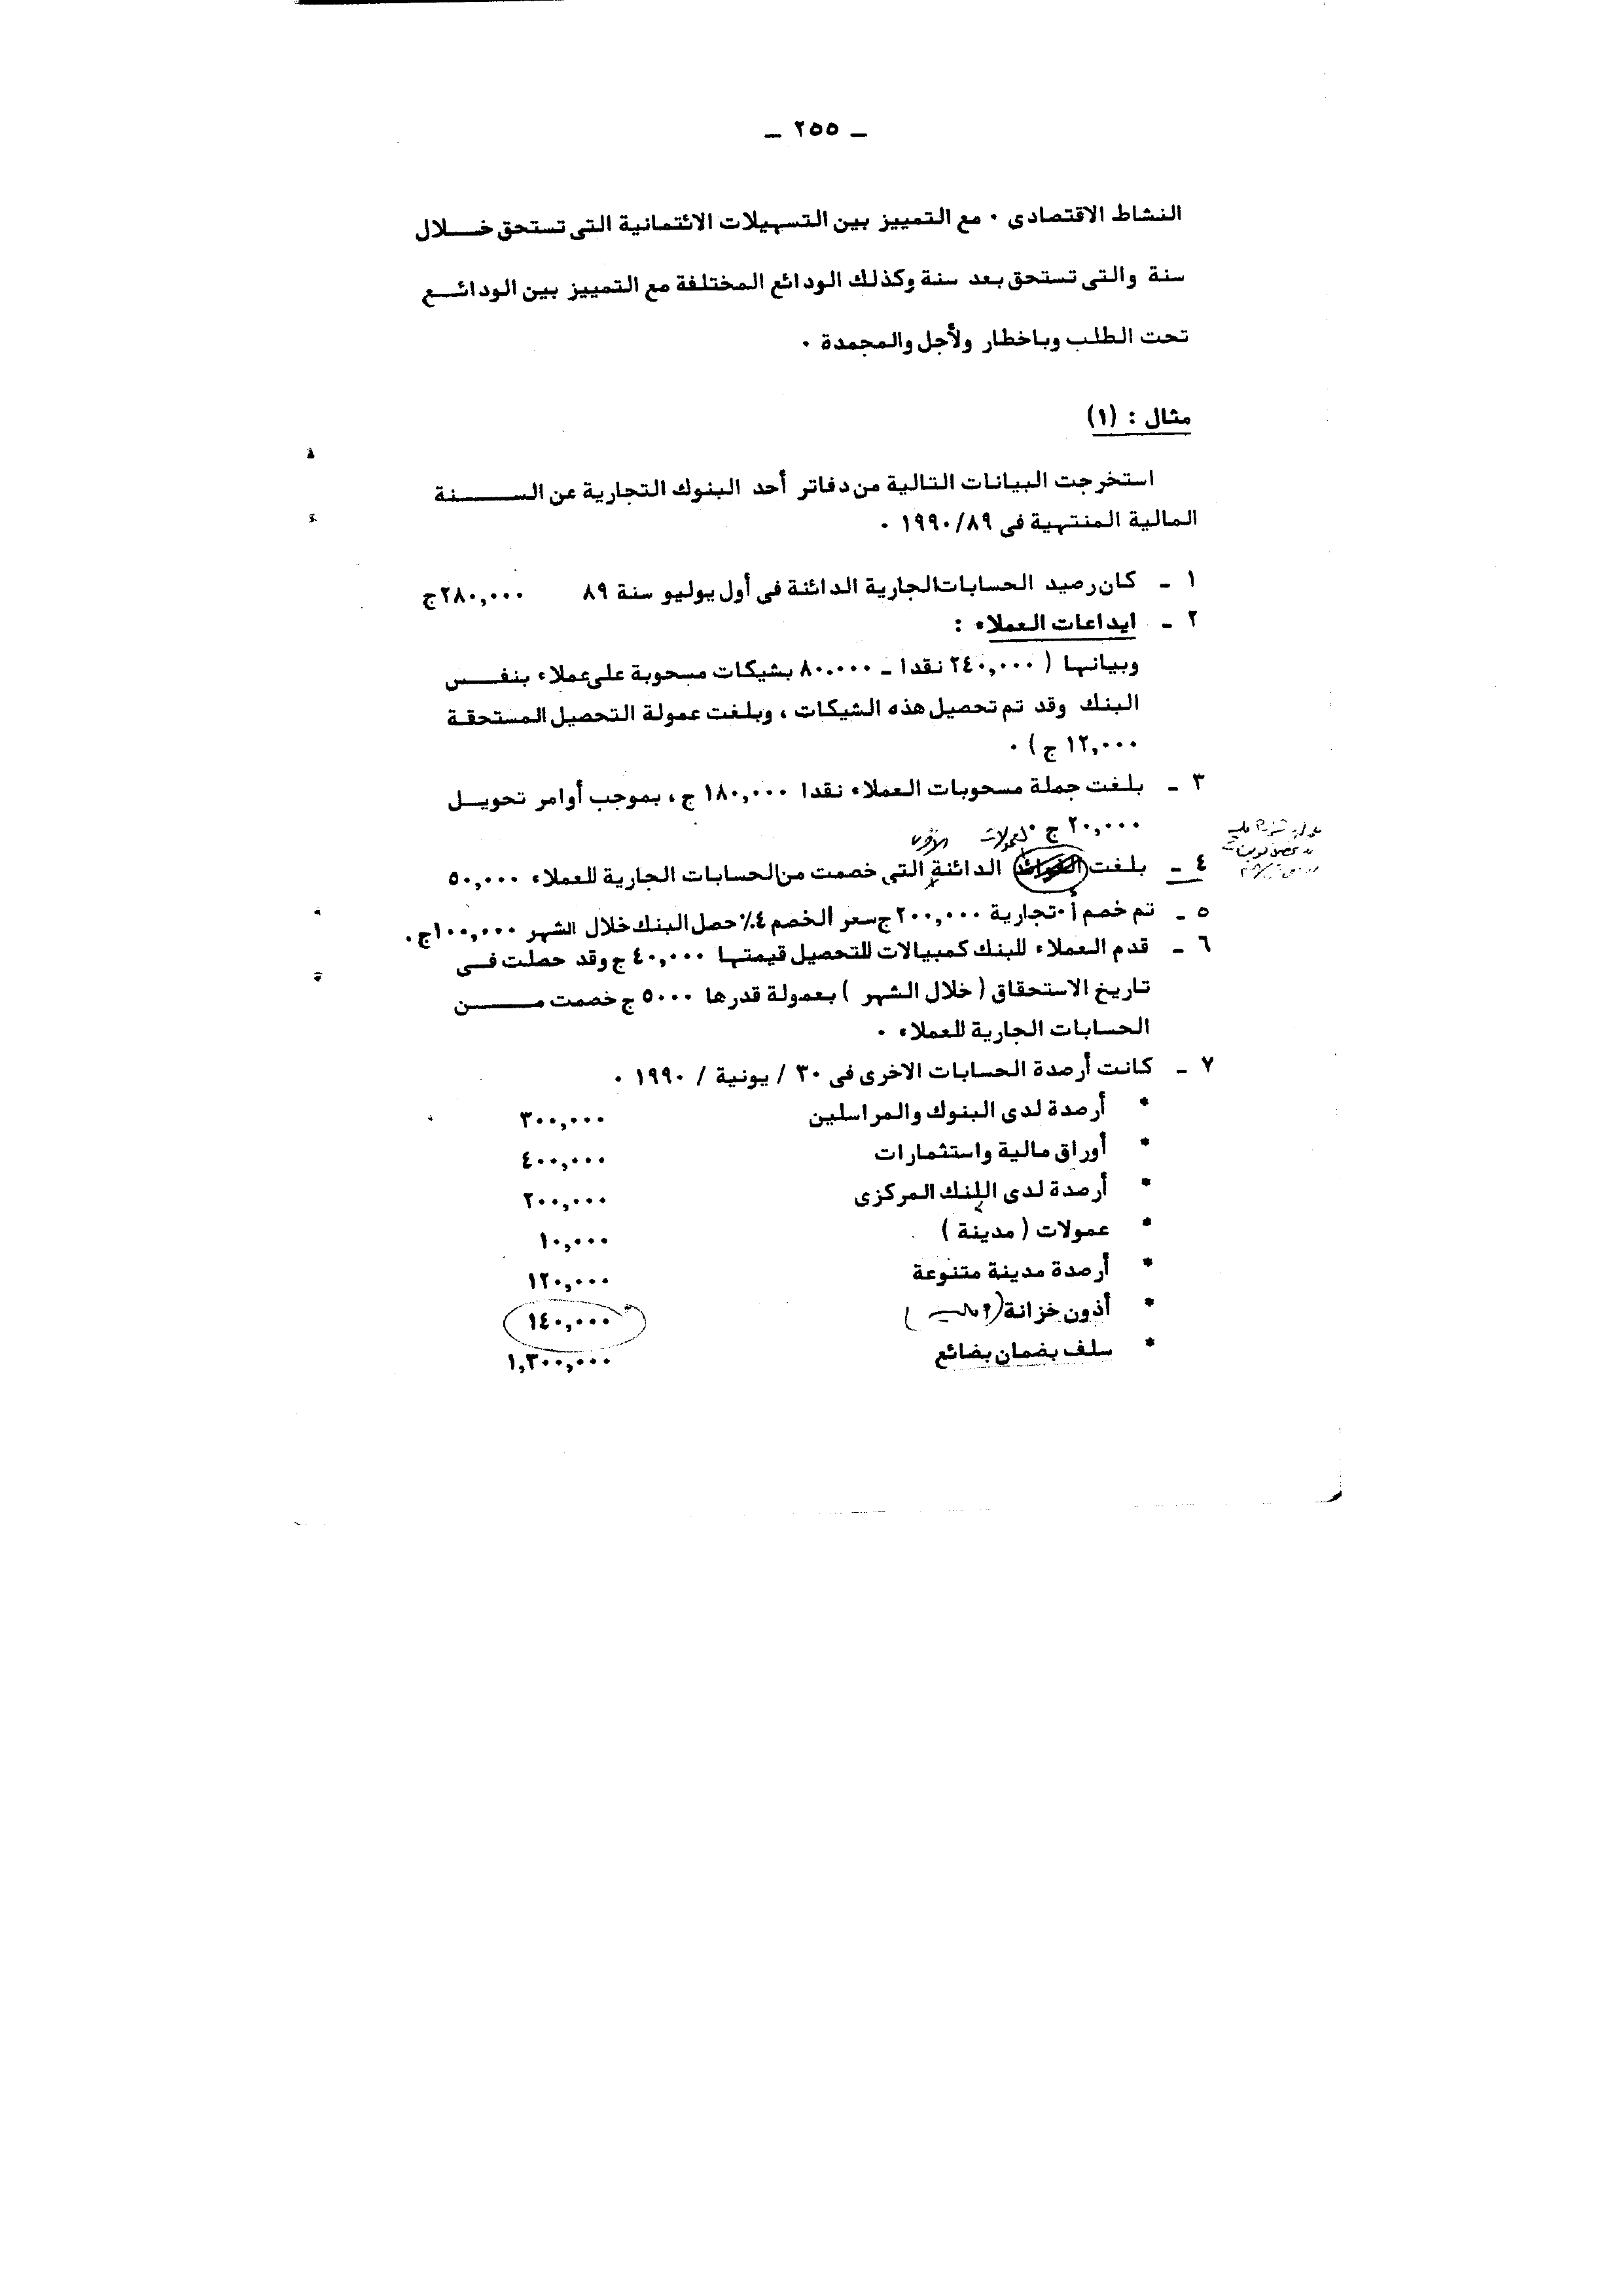 ـ ٢٥٥ ـ
النشاط الاقتصادى ٠ مع التمييز بين التسهيلات الائتمانية التى تستحق خـــلال
سنة والتى تستحق بعد سنة وكذلك الودائع المختلفة مع التمييز بين الودائــع
تحت الطلب وباخطار ولأجل والمجمدة ٠
مثال : (١)
استخرجت البيانات التالية من دفاتر أحد البنوك التجارية عن الســـــنة
المالية المنتهية فى ١٩٩٠/٨٩ ٠
١ ـ كان رصيد الحسابات الجارية الدائنة فى أول يوليو سنة ٨٩ ٢٨٠,٠٠٠ج
٢ ـ ايداعات العملاء :
وبيانها ( ٢٤٠,٠٠٠ نقدا ـ ٨٠.٠٠٠ بشيكات مسحوبة على عملاء بنفـــس
البنك وقد تم تحصيل هذه الشيكات ، وبلغت عمولة التحصيل المستحقة
١٢,٠٠٠ ج ) ٠
٣ ـ بلغت جملة مسحوبات العملاء نقدا ١٨٠,٠٠٠ ج ، بموجب أوامر تحويــل
٢٠,٠٠٠ ج ٠
العمولات الأخرى
٤ ـ بلغت الدائنة التى خصمت من الحسابات الجارية للعملاء ٥٠,٠٠٠
٥ ـ تم خصم أ٠تجارية ٢٠٠,٠٠٠ج سعر الخصم ٤٪ حصل البنك خلال الشهر ١٠٠,٠٠٠ج ٠
٦ ـ قدم العملاء للبنك كمبيالات للتحصيل قيمتها ٤٠,٠٠٠ ج وقد حصلت فــى
تاريخ الاستحقاق ( خلال الشهر ) بعمولة قدرها ٥٠٠٠ ج خصمت مـــــن
الحسابات الجارية للعملاء ٠
٧ ـ كانت أرصدة الحسابات الاخرى فى ٣٠ / يونية / ١٩٩٠ ٠
* أرصدة لدى البنوك والمراسلين ٣٠٠,٠٠٠
* أوراق مالية واستثمارات ٤٠٠,٠٠٠
* أرصدة لدى البنك المركزى ٢٠٠,٠٠٠
* عمولات ( مدينة ) ١٠,٠٠٠
* أرصدة مدينة متنوعة ١٢٠,٠٠٠
* أذون خزانة ١٤٠,٠٠٠
* سلف بضمان بضائع ١,٣٠٠,٠٠٠